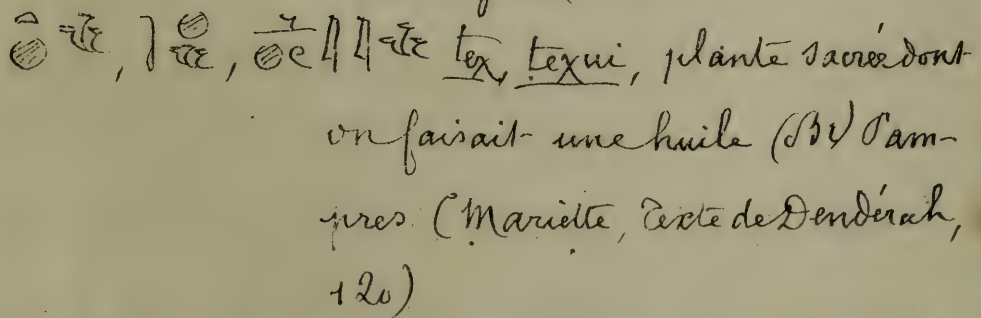 tex, texui, plante sacrée dont
on faisait une huile (Br) Pam-
pres (Mariette, Texte de Dendérah,
120)